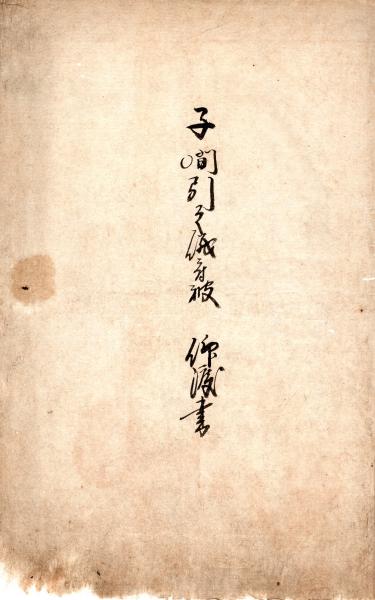 子間引之儀ニ付被 仰渡書